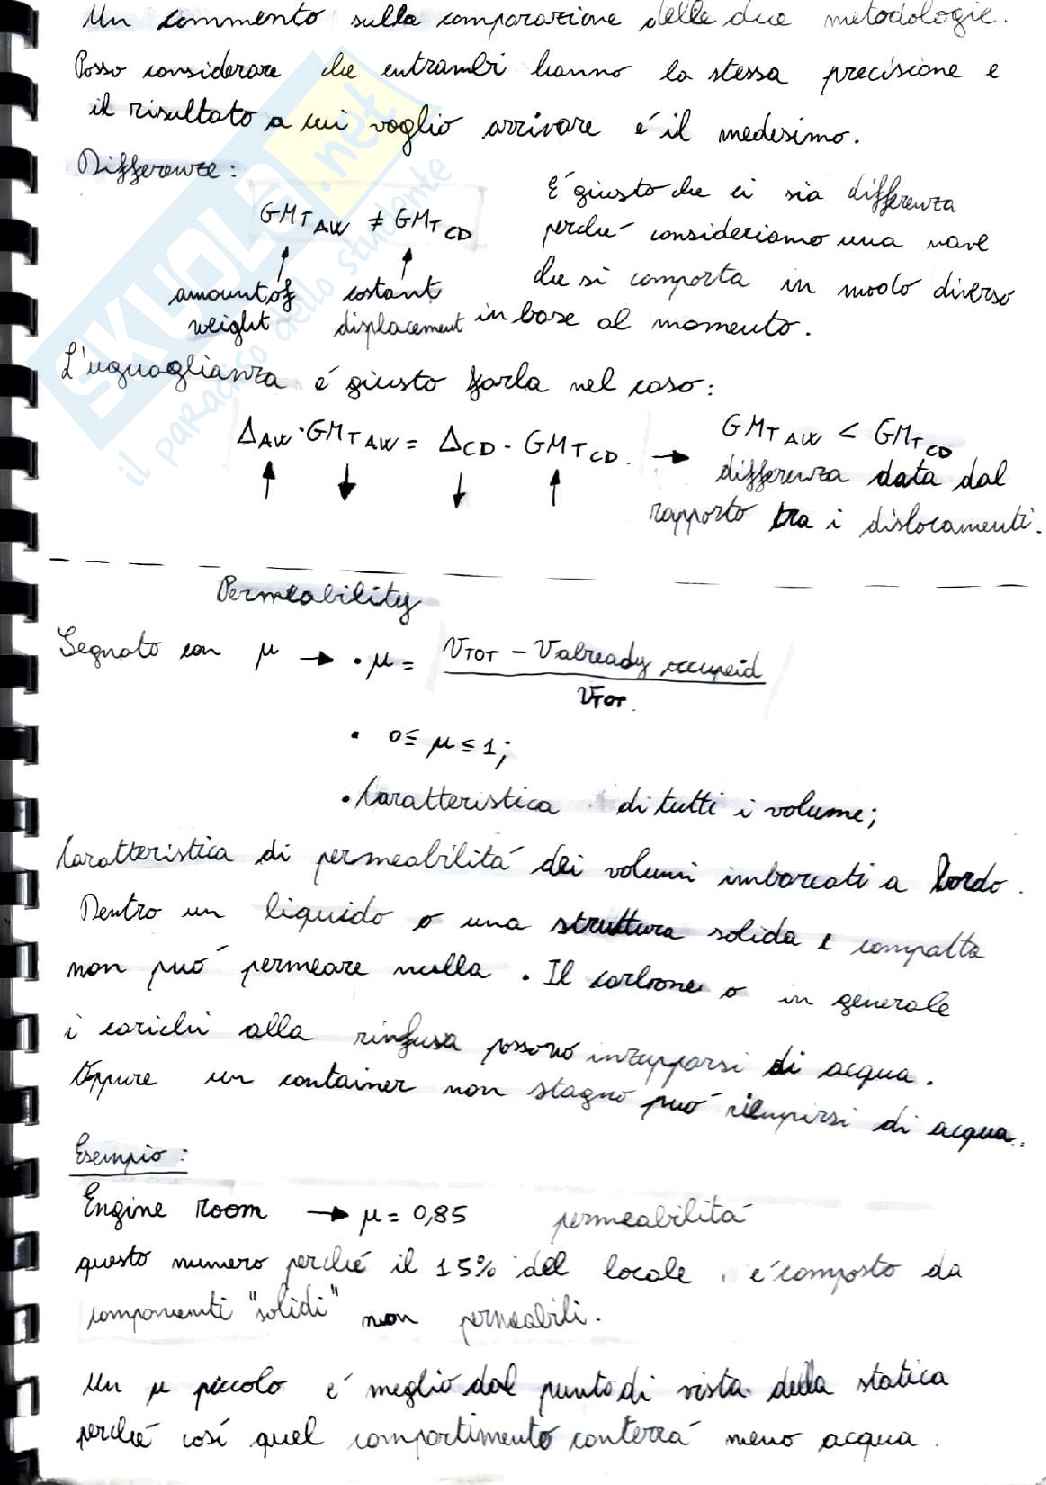 Un commento sulla comparazione delle due metodologie.
Posso considerare che entrambi hanno la stessa precisione e
il risultato a cui voglio arrivare é il medesimo.
Differenze:
GMT AW ≠ GMT CD
amount of weight
costant displacement
É giusto che ci sia differenza
perché consideriamo una nave
che si comporta in modo diverso
in base al momento.
L'uguaglianza é giusto farla nel caso:
Δ AW · GMT AW = Δ CD · GMT CD → GMT AW < GMT CD
↑ ↓ ↓ ↑
differenza data dal
rapporto tra i dislocamenti.
Permeability
Segnato con μ → • μ = (VTOT - Valready occupeid) / VTOT.
• 0 ≤ μ ≤ 1;
• Caratteristica di tutti i volume;
Caratteristica di permeabilitá dei volumi imbarcati a bordo.
Dentro un liquido o una struttura solida e compatta
non puó permeare nulla. Il carbone o in generale
i carichi alla rinfusa possono inzupparsi di acqua.
Oppure un container non stagno puó riempirsi di acqua.
Esempio:
Engine room → μ = 0,85 permeabilitá
questo numero perché il 15% del locale é composto da
componenti "solidi" non permeabili.
Un μ piccolo é meglio dal punto di vista della statica
perché cosí quel compartimento conterrá meno acqua.
SKUOLA.net
il paradiso dello studente